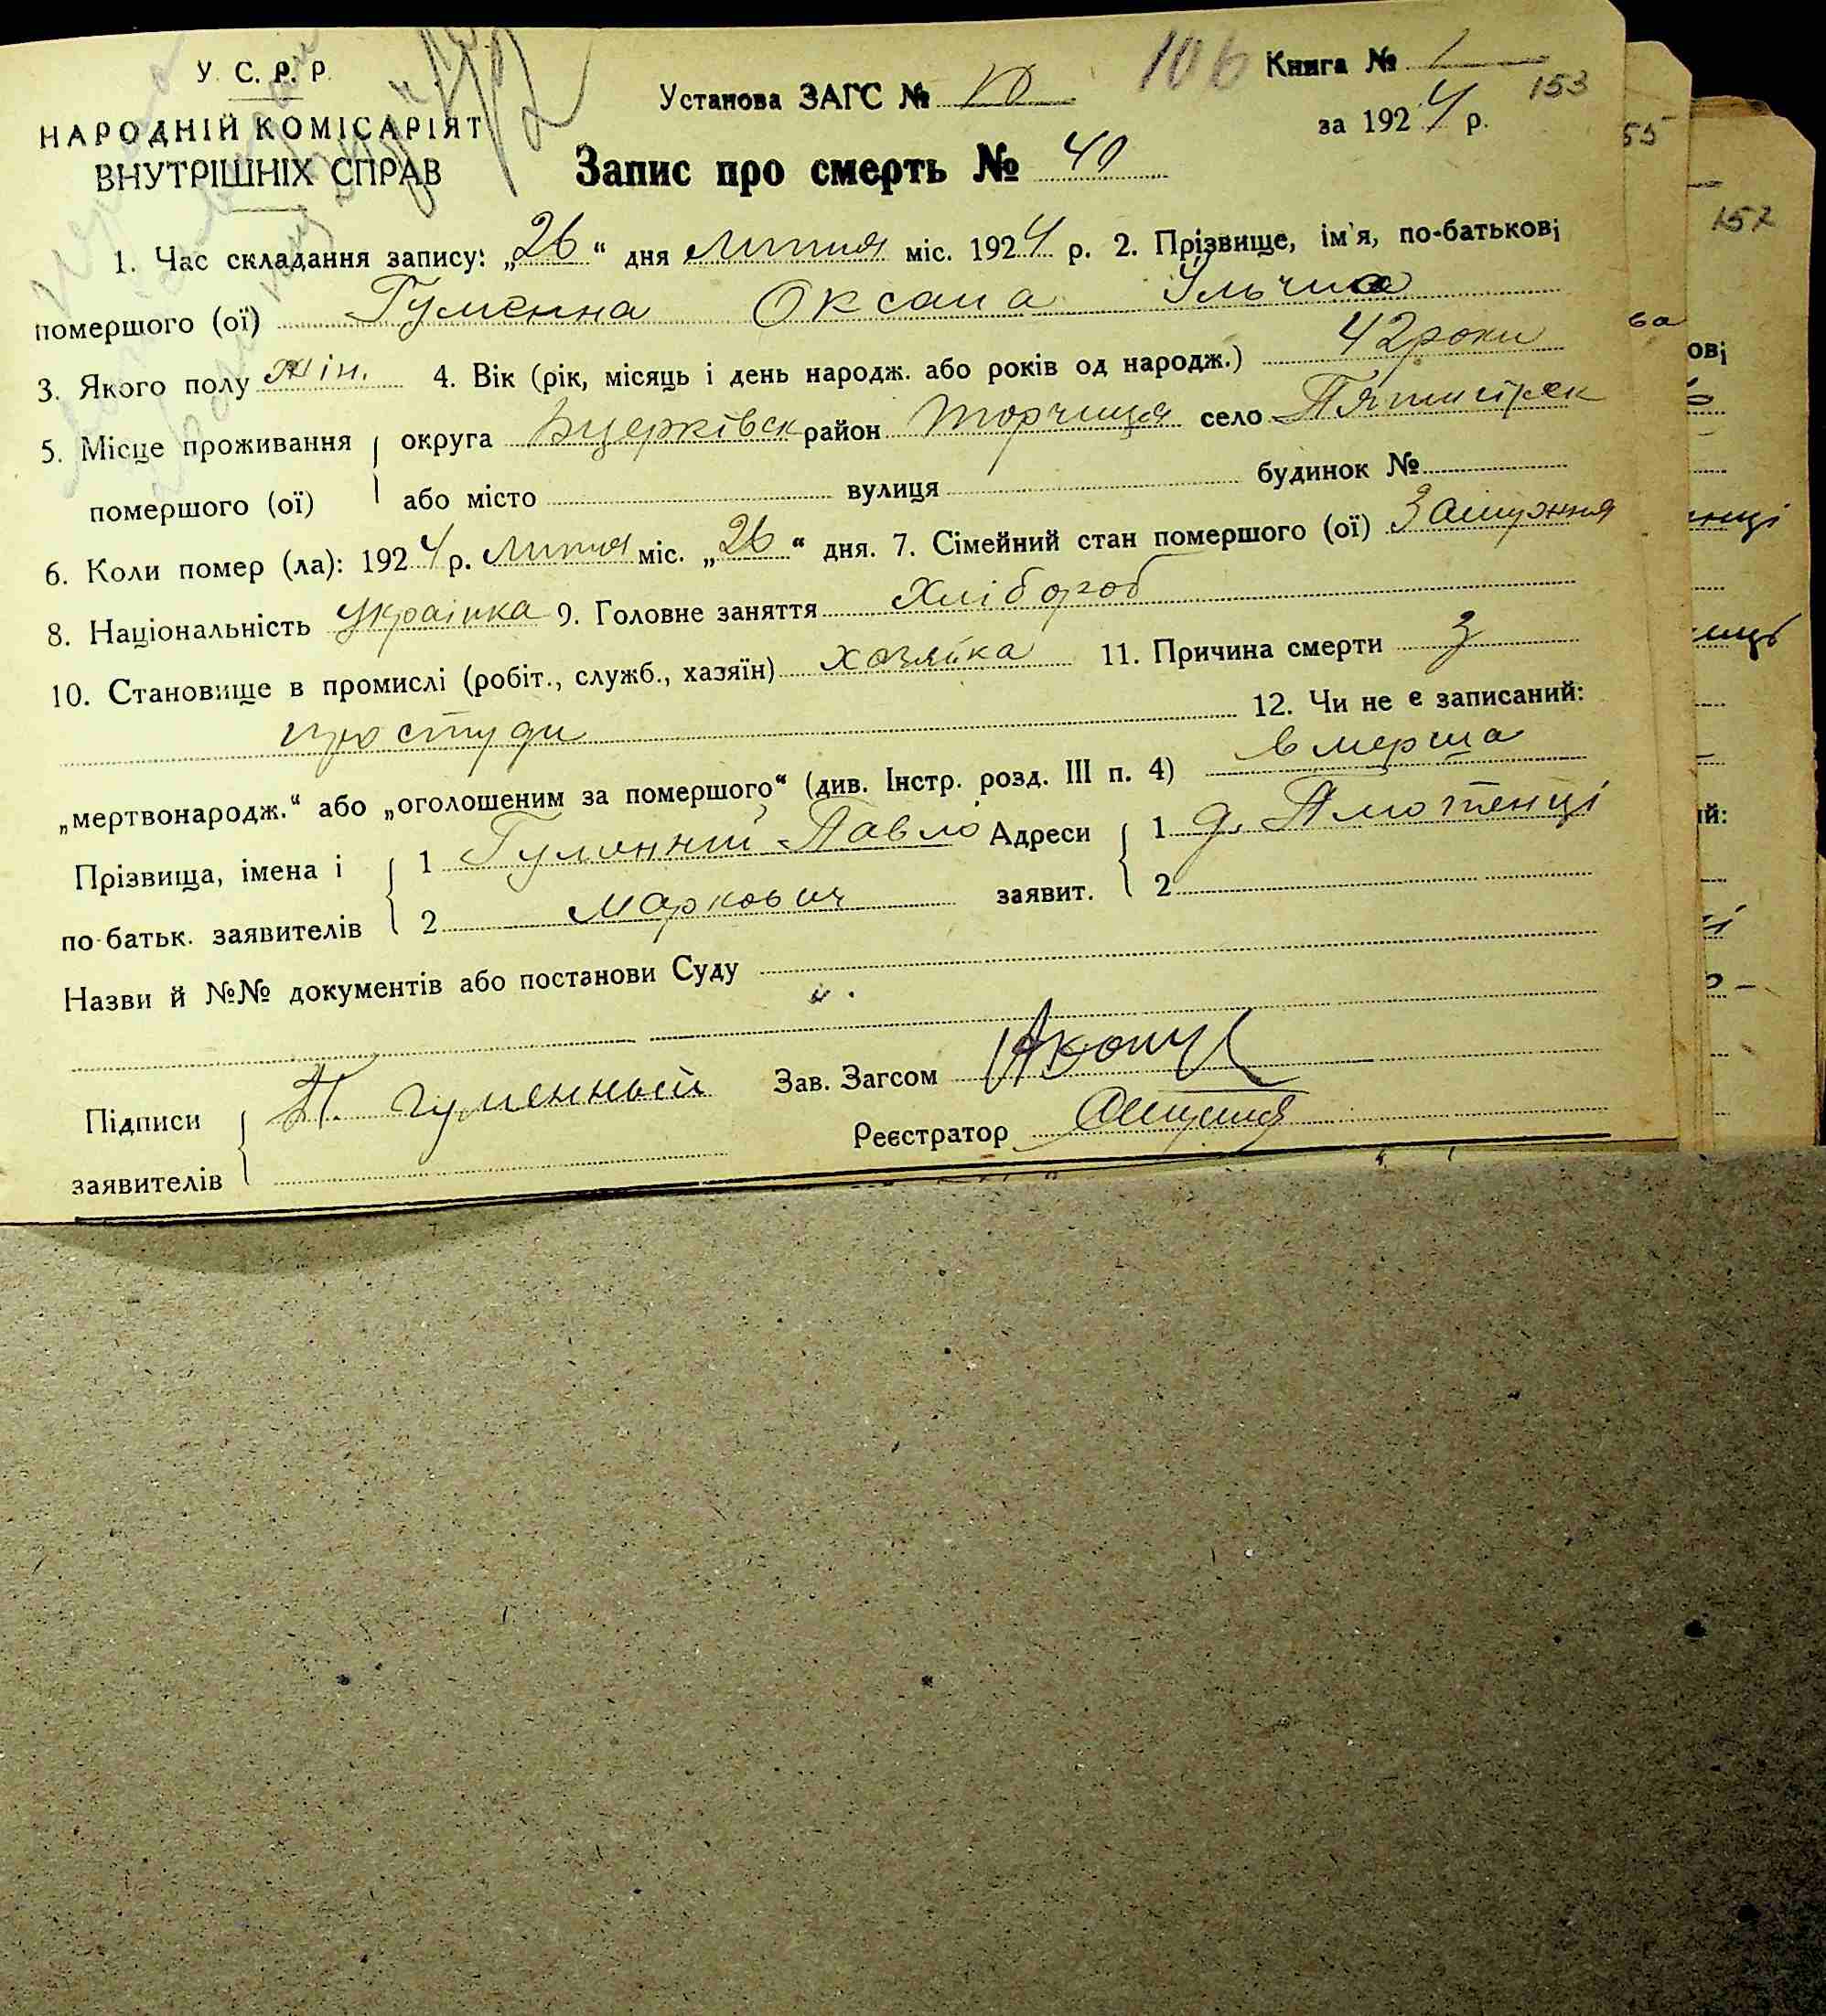 У. С. Р. Р.
НАРОДНІЙ КОМІСАРІЯТ
ВНУТРІШНІХ СПРАВ
Установа ЗАГС №
106
Книга № 1
153
за 1924 р.
Запис про смерть № 40
1. Час складання запису: „26“ дня Липня міс. 1924 р. 2. Прізвище, ім'я, по-батькові
помершого (ої) Гуменна Оксана
3. Якого полу жін. 4. Вік (рік, місяць і день народж. або років од народж.) 42 роки
5. Місце проживання округа Бцерківск район Торчиця село
помершого (ої) або місто вулиця будинок №
6. Коли помер (ла): 1924 р. Липня міс. „26“ дня. 7. Сімейний стан помершого (ої) Замужння
8. Національність Українка 9. Головне заняття Хлібороб
10. Становище в промислі (робіт., служб., хазяїн) хозяйка 11. Причина смерти З
простуди 12. Чи не є записаний:
„мертвонародж.“ або „оголошеним за помершого“ (див. Інстр. розд. III п. 4) вмерша
Прізвища, імена і 1 Гуменний Павло Адреси 1
по-батьк. заявителів 2 Маркович заявит. 2
Назви й №№ документів або постанови Суду
Підписи П. Гуменный Зав. Загсом
заявителів Реєстратор
55
157
6а
ові
ий: